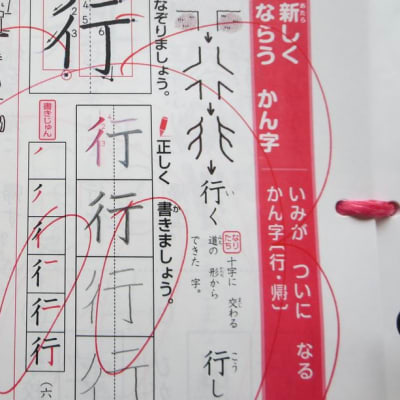 新しく
あたら
ならう かん字
いみが ついに なる
かん字〔行・帰〕
行く
い
なりたち
十字に 交わる
道の 形から
できた 字。
行し
こう
なぞりましょう。
正しく 書きましょう。
か
行
行
行
行
行
書きじゅん
行
(六